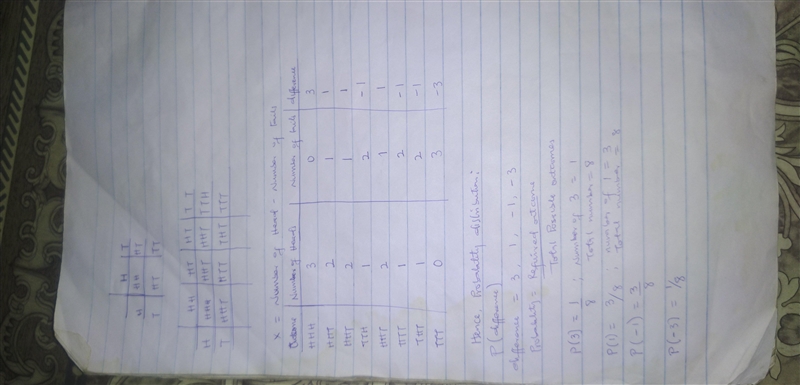 H T
H HH HT
T HT TT
HH HT HT TT
H HHH HHT HHT TTH
T HHT HTT THT TTT
X = number of Head - Number of Tails
Outcome Number of Heads number of tails difference
HHH 3 0 3
HHT 2 1 1
HHT 2 1 1
TTH 1 2 -1
HHT 2 1 1
HTT 1 2 -1
THT 1 2 -1
TTT 0 3 -3
Hence Probability distribution:
P(difference)
difference = 3, 1, -1, -3
Probability = Required outcome
Total Possible outcomes
P(3) = 1/8 ; Number of 3 = 1
Total number = 8
P(1) = 3/8 ; number of 1 = 3
Total number = 8
P(-1) = 3/8
P(-3) = 1/8